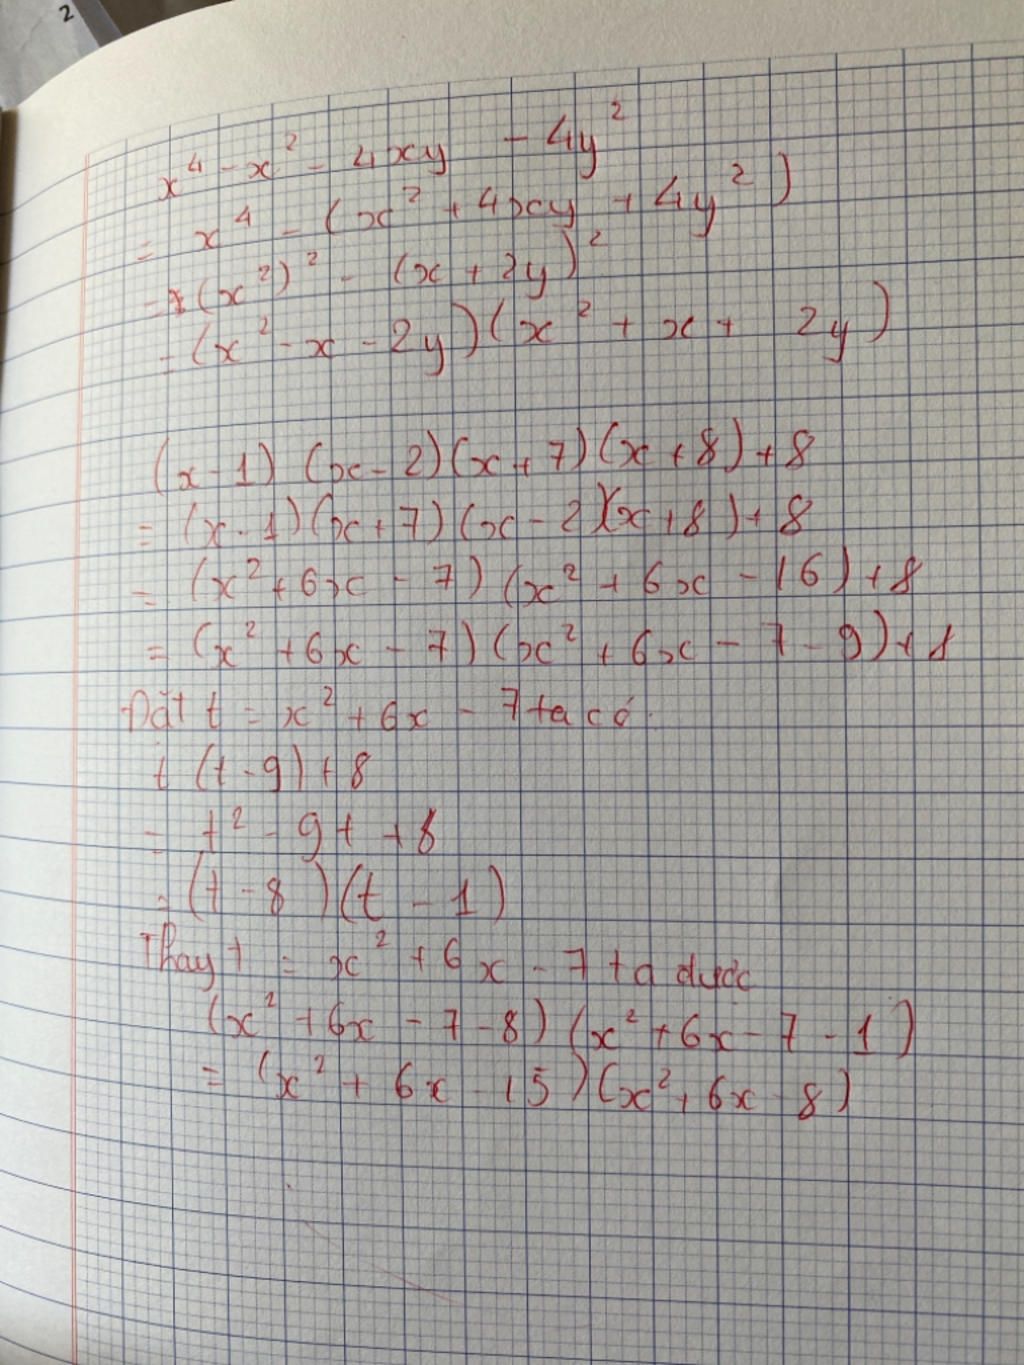 2
x⁴ - x² - 4xy - 4y²
= x⁴ - (x² + 4xy + 4y²)
= (x²)² - (x + 2y)²
= (x² - x - 2y)(x² + x + 2y)
(x - 1) (x - 2)(x + 7)(x + 8) + 8
= (x - 1)(x + 7)(x - 2)(x + 8) + 8
= (x² + 6x - 7) (x² + 6x - 16) + 8
= (x² + 6x - 7) (x² + 6x - 7 - 9) + 8
Đặt t = x² + 6x - 7 ta có
t (t - 9) + 8
= t² - 9t + 8
= (t - 8)(t - 1)
Thay t = x² + 6x - 7 ta được
(x² + 6x - 7 - 8) (x² + 6x - 7 - 1)
= (x² + 6x - 15)(x² + 6x - 8)